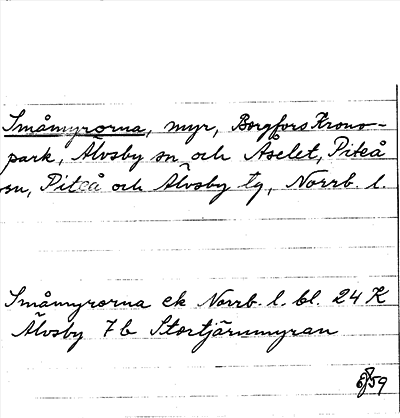 Småmyrorna, myr, Borgfors Krono-
park, Älvsby sn och Aselet, Piteå
sn, Piteå och Älvsby tg, Norrb. l.
Småmyrorna ek Norrb. l. bl. 24 K
Älvsby 7 b Stortjärnmyran
59